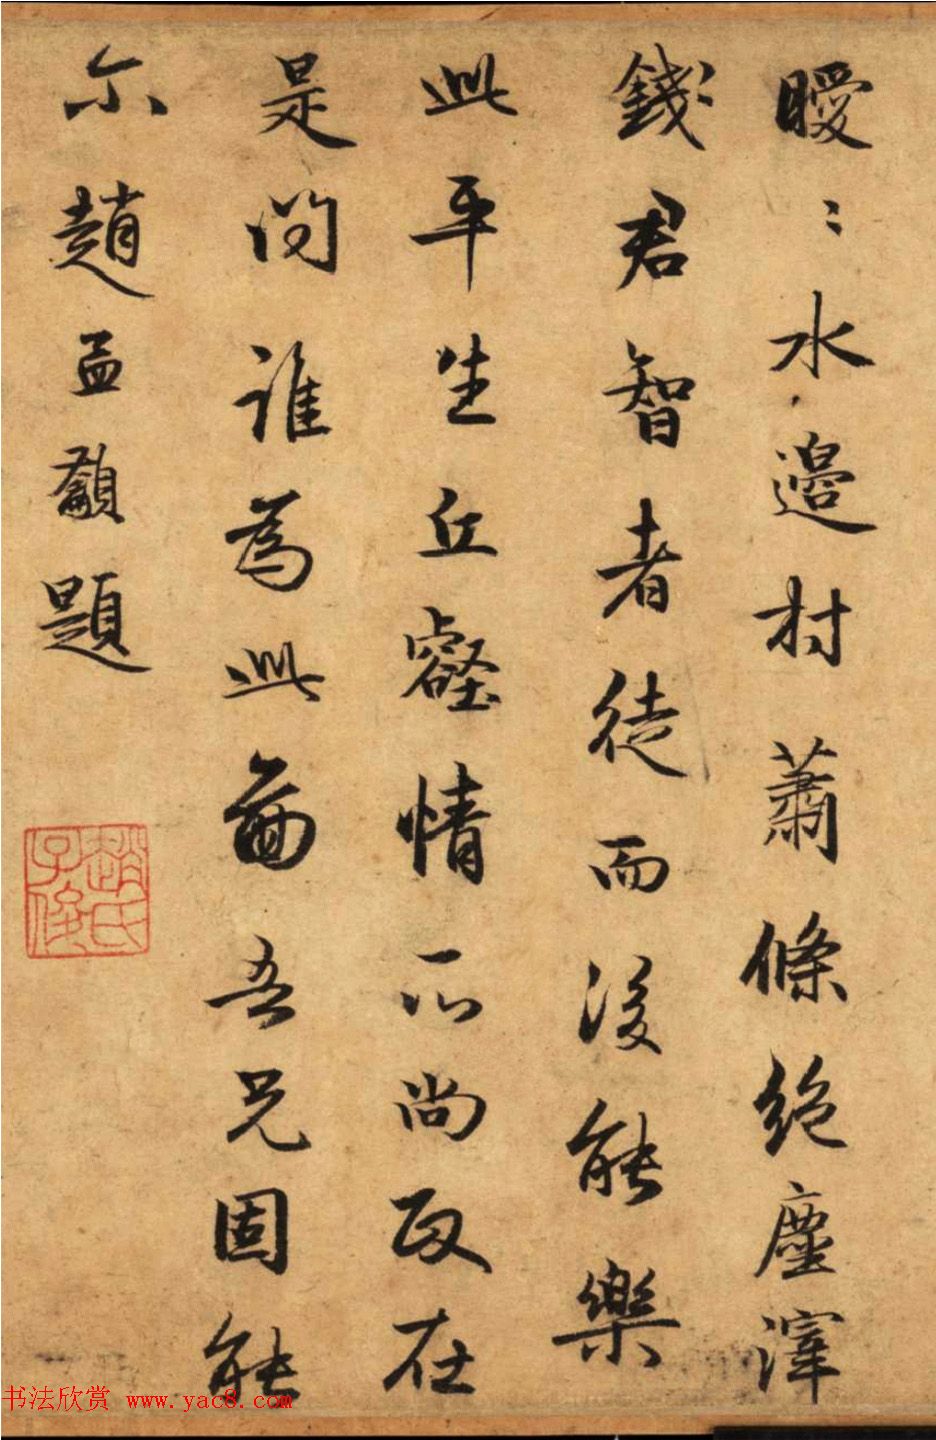 曖〻水邊村蕭條絕塵滓
錢君智者徒而後能樂
此平生丘壑情所尚政在
是問誰為此啚吾兄固能
尒趙孟龥題
趙氏子俊
书法欣赏 www.yac8.com